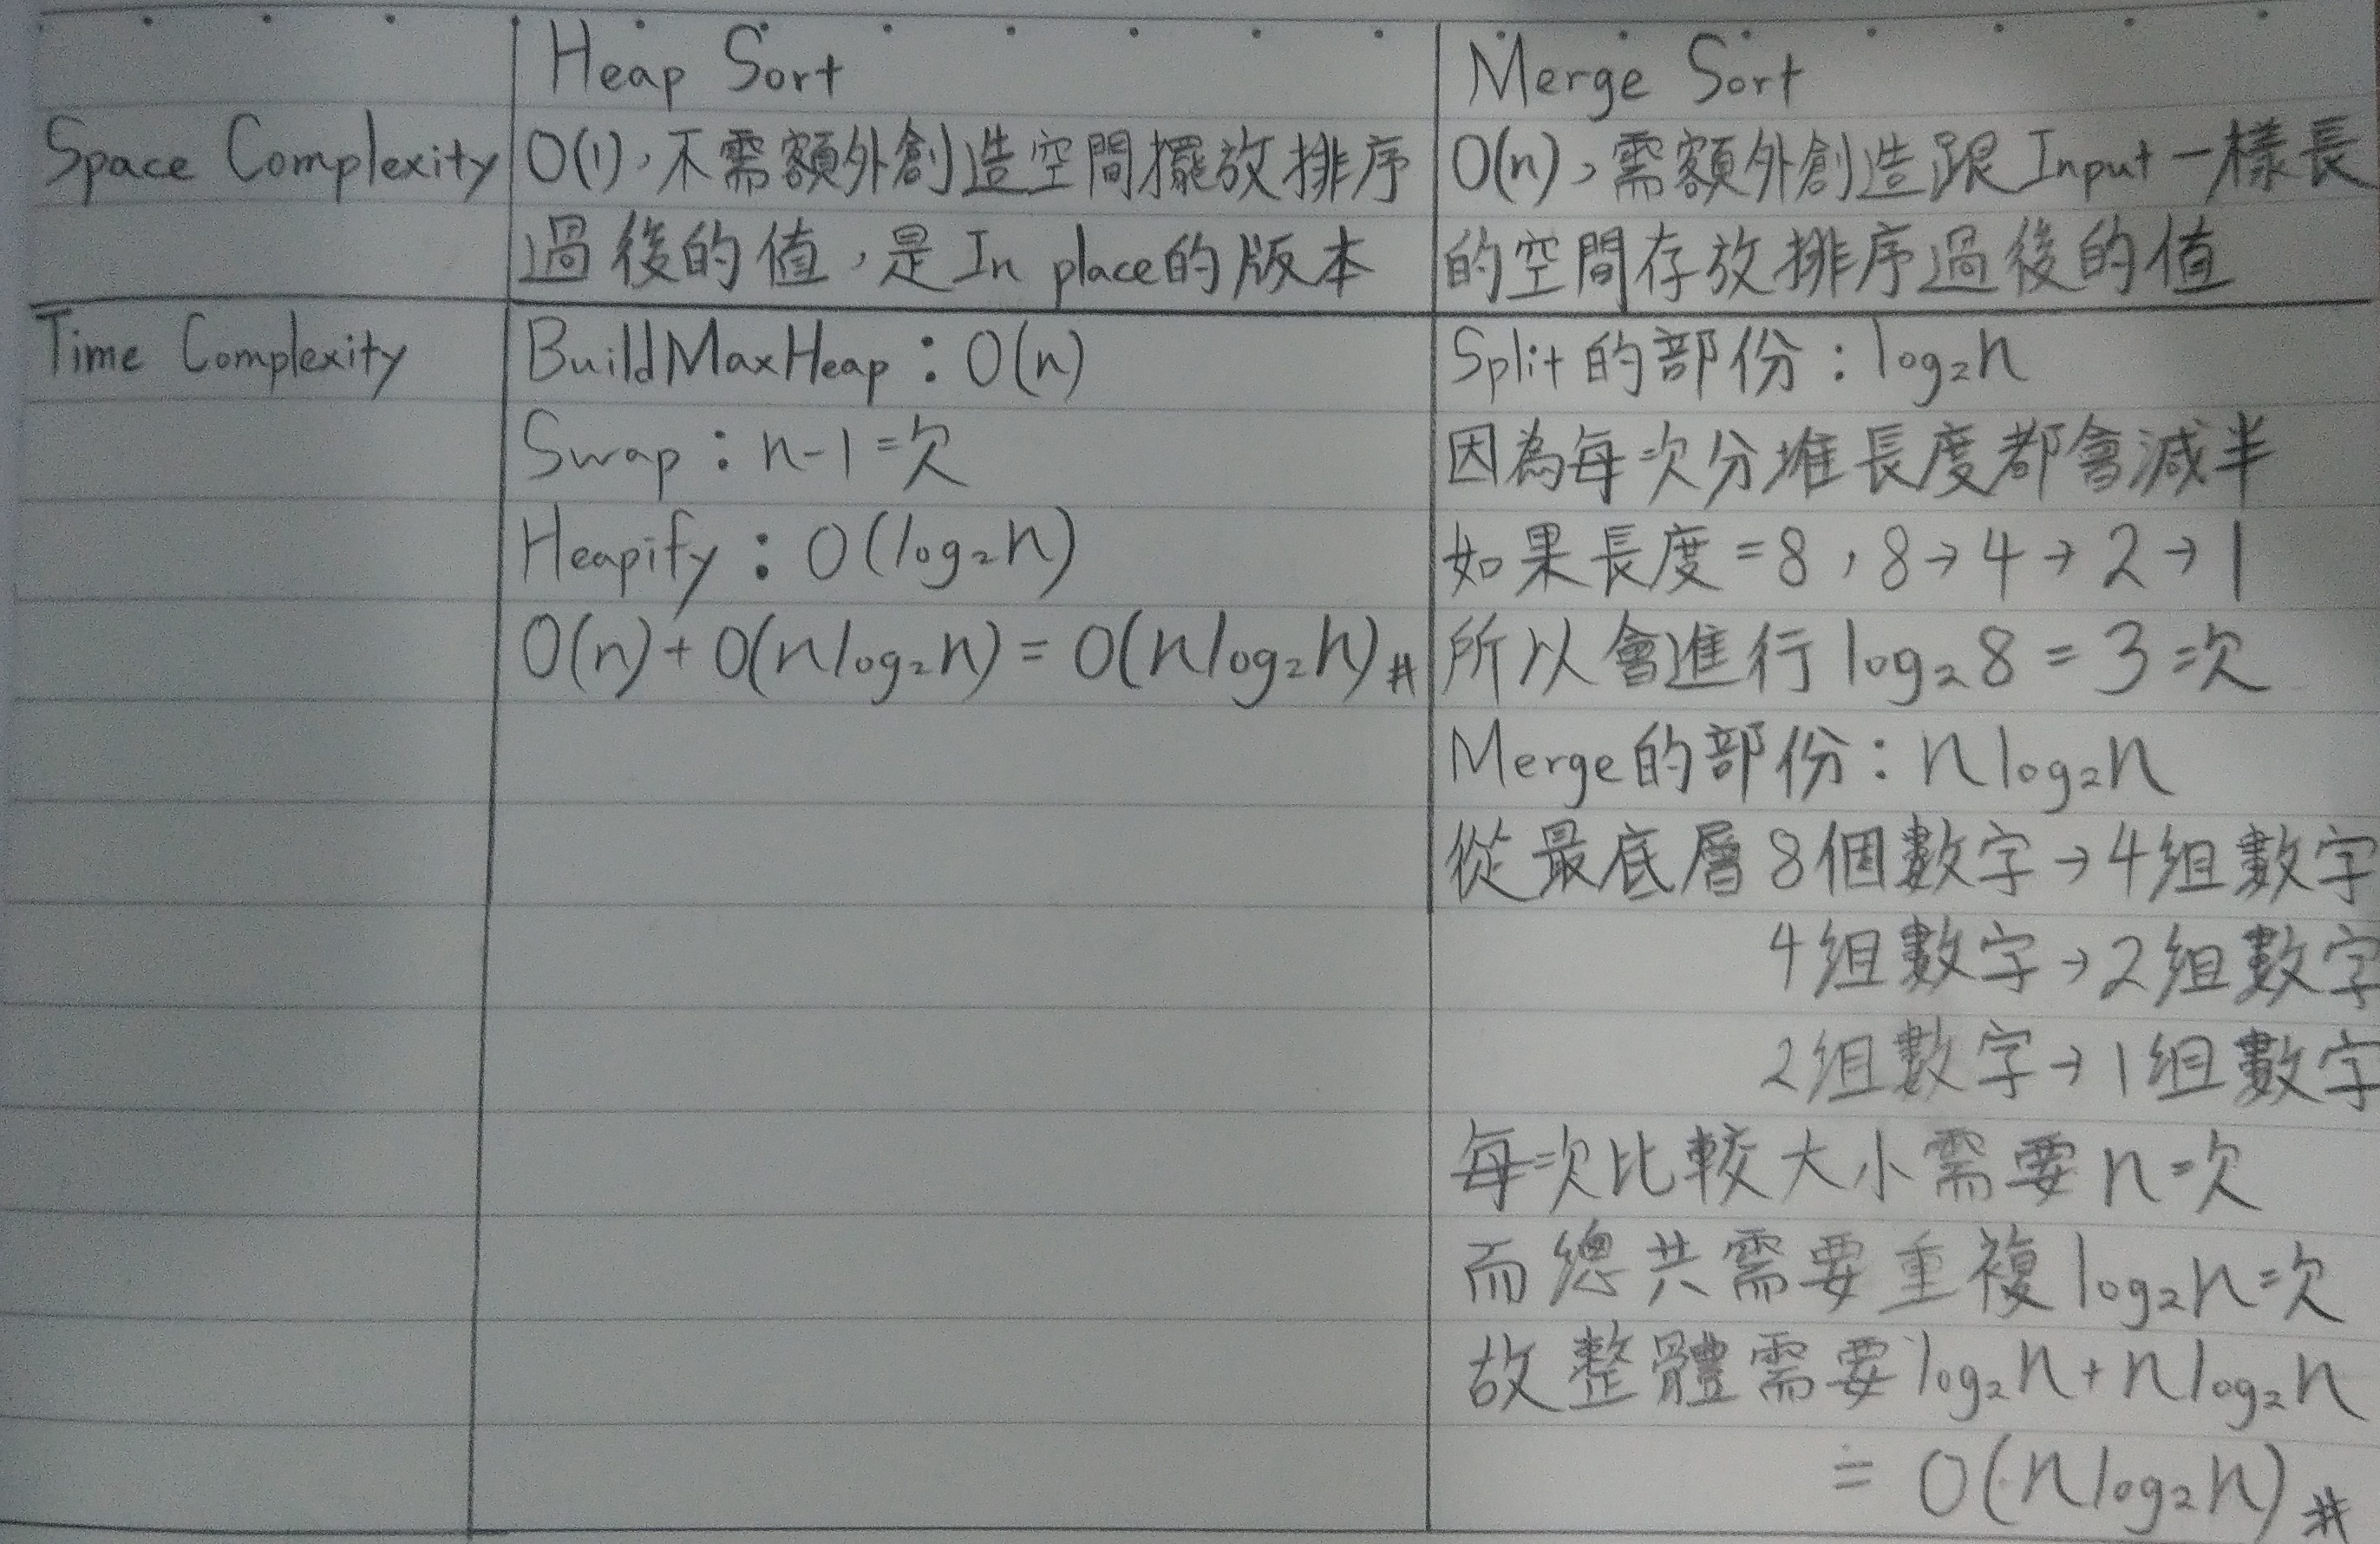 Heap Sort
Merge Sort
Space Complexity
O(1),不需額外創造空間擺放排序
過後的值,是In place的版本
O(n),需額外創造跟Input一樣長
的空間存放排序過後的值
Time Complexity
BuildMaxHeap:O(n)
Swap:n-1次
Heapify:O(log₂n)
O(n)+O(nlog₂n)=O(nlog₂n)#
Split的部份:log₂n
因為每次分堆長度都會減半
如果長度=8,8→4→2→1
所以會進行log₂8=3次
Merge的部份:nlog₂n
從最底層8個數字→4組數字
4組數字→2組數字
2組數字→1組數字
每次比較大小需要n次
而總共需要重複log₂n次
故整體需要log₂n+nlog₂n
≐O(nlog₂n)#